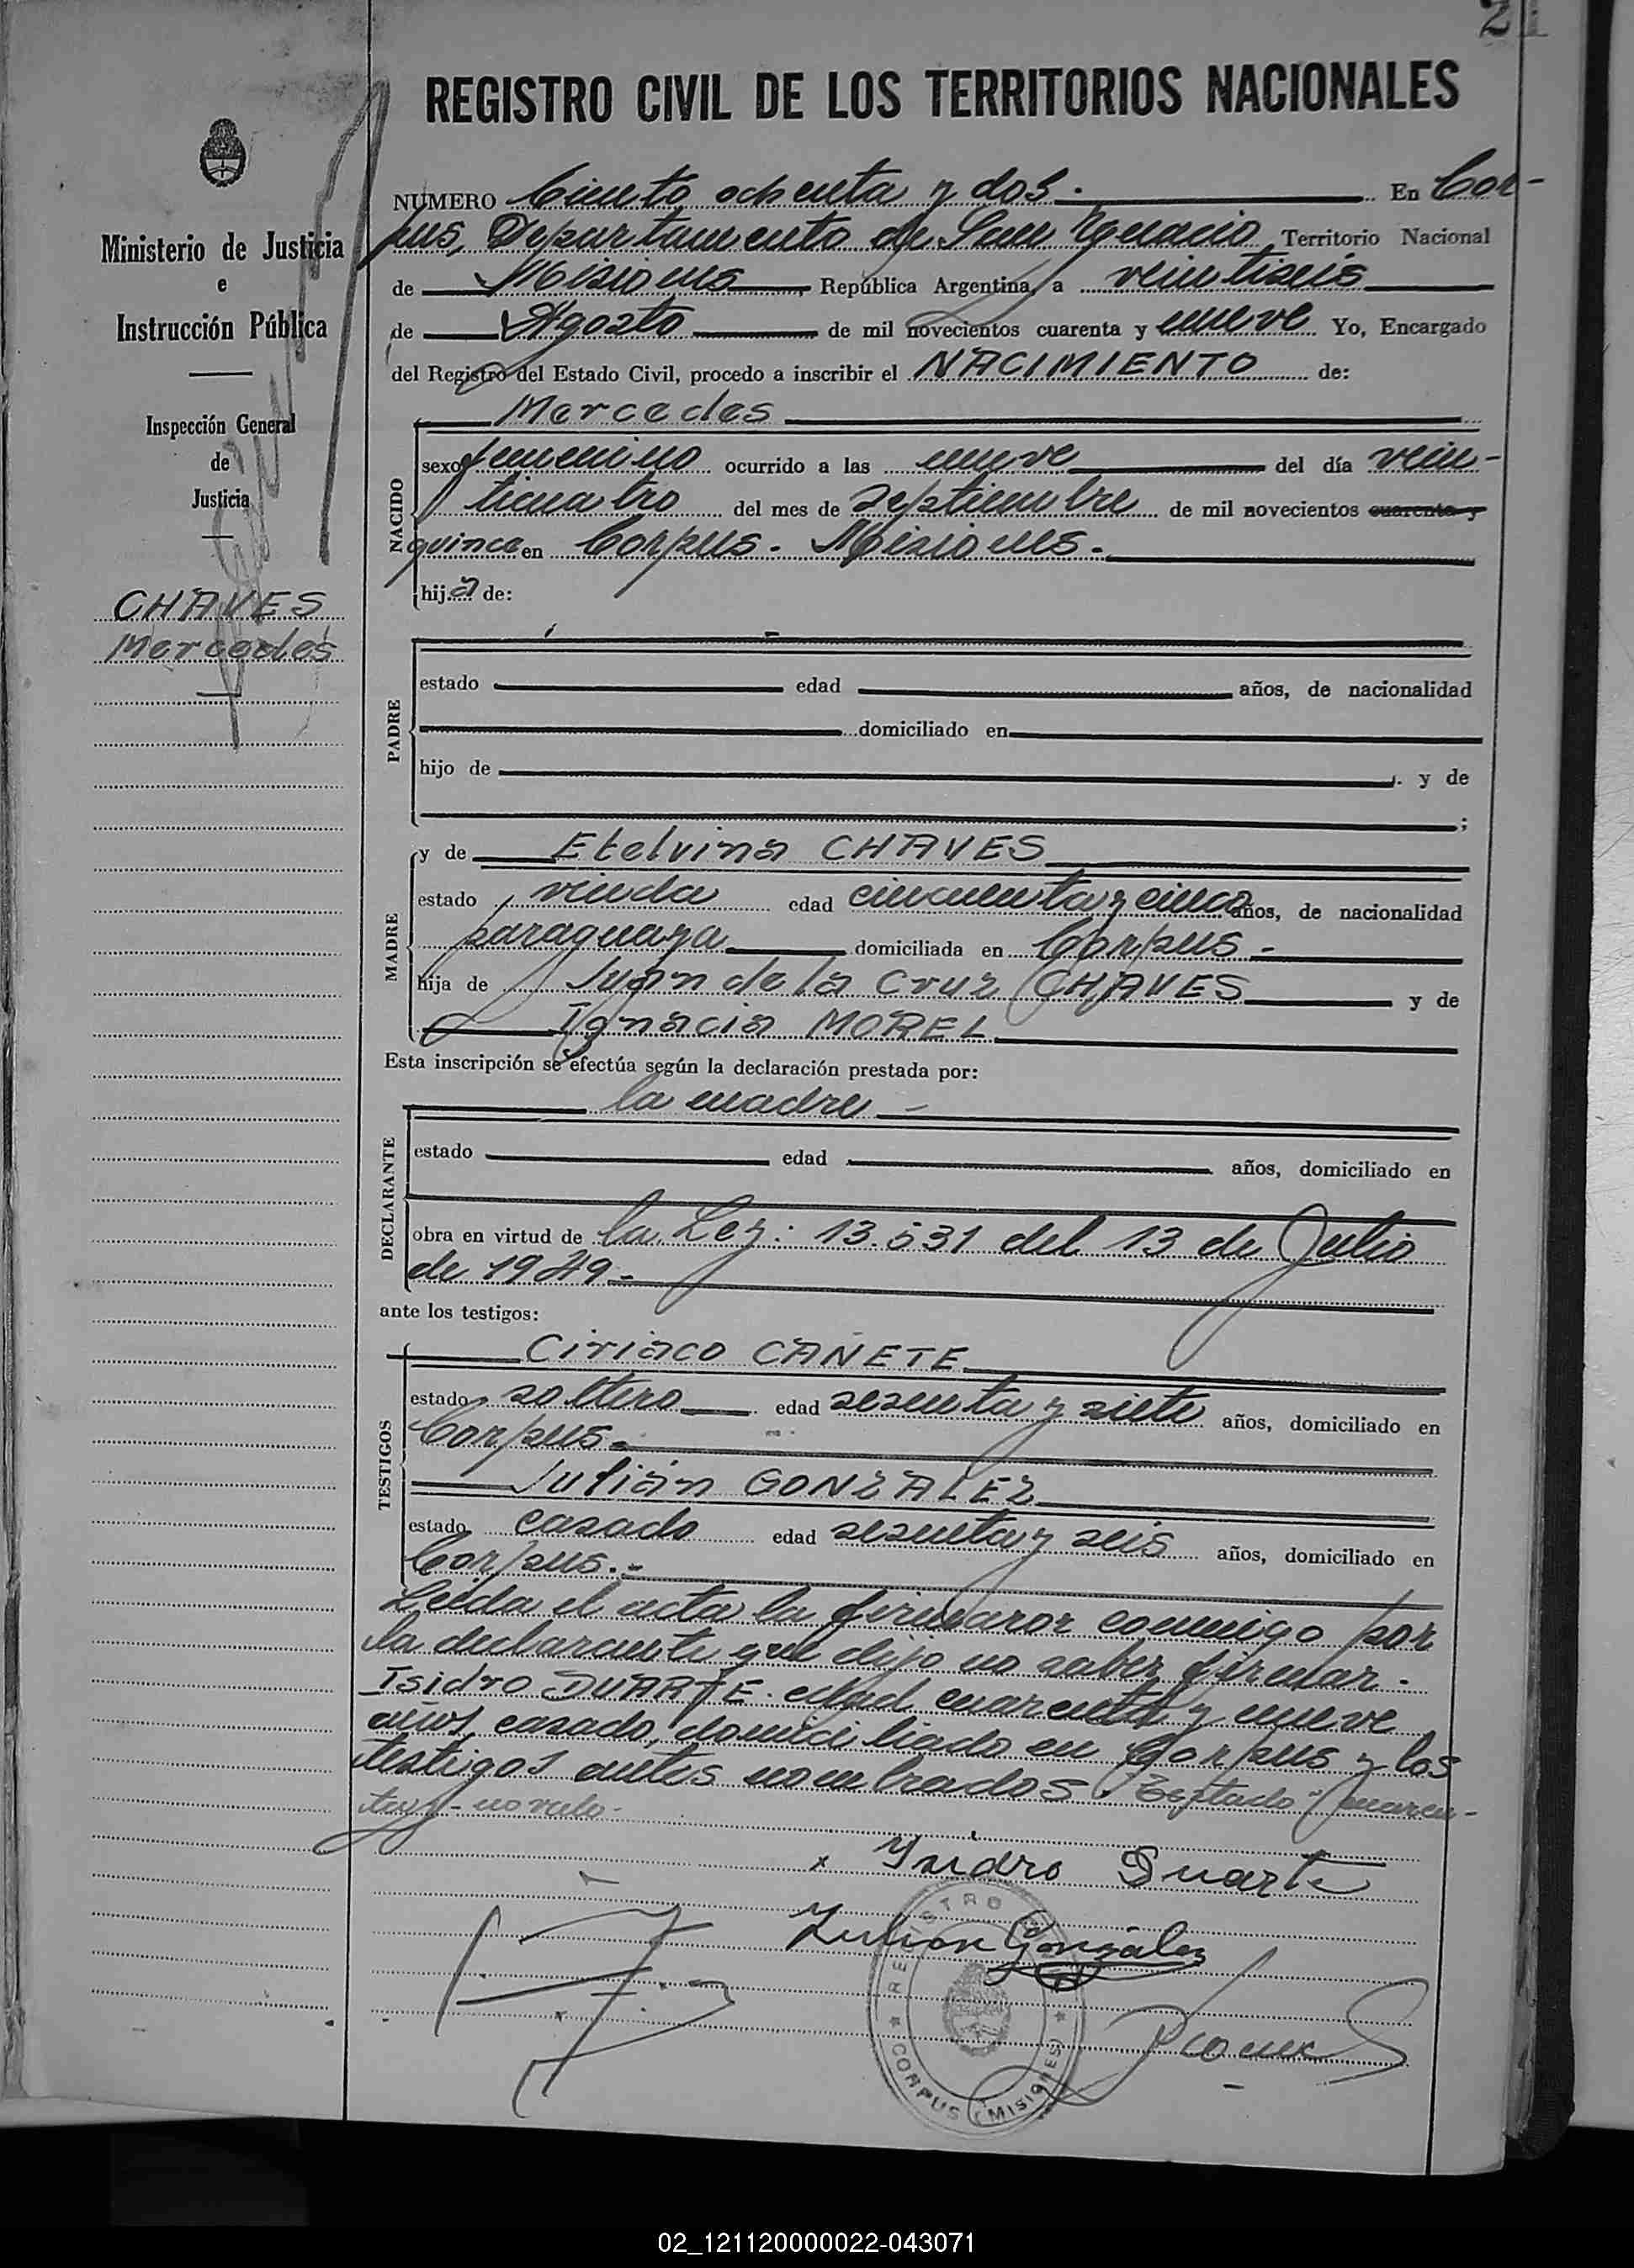 21
REGISTRO CIVIL DE LOS TERRITORIOS NACIONALES
Ministerio de Justicia
e
Instrucción Pública
Inspección General
de
Justicia
CHAVES
Mercedes
NUMERO Ciento ochenta y dos. En Cor-
pus, Departamento de San Ignacio, Territorio Nacional
de Misiones, República Argentina, a veintiseis
de Agosto de mil novecientos cuarenta y nueve Yo, Encargado
del Registro del Estado Civil, procedo a inscribir el NACIMIENTO de:
NACIDO
Mercedes
sexo femenino ocurrido a las nueve del día vein-
ticuatro del mes de Septiembre de mil novecientos cuarenta y
quince en Corpus. Misiones.
hija de:
PADRE
estado edad años, de nacionalidad
domiciliado en
hijo de y de
;
MADRE
y de Etelvina CHAVES
estado viuda edad cincuenta y cinco años, de nacionalidad
paraguaya domiciliada en Corpus-
hija de Juan de la Cruz CHAVES y de
Ignacia MOREL
Esta inscripción se efectúa según la declaración prestada por:
DECLARANTE
la madre -
estado edad años, domiciliado en
obra en virtud de la Ley: 13.531 del 13 de Julio
de 1949.-
ante los testigos:
TESTIGOS
Ciriaco CAÑETE
estado soltero edad sesenta y siete años, domiciliado en
Corpus-
Julián GONZALEZ
estado casado edad sesenta y seis años, domiciliado en
Corpus.-
Leída el acta la firmaron conmigo por
la declarante que dijo no saber firmar.
Isidro DUARTE. edad cuarenta y nueve
años, casado, domiciliado en Corpus y los
testigos antes nombrados. Testado: cuaren-
ta y - no vale-
x Ysidro Duarte
Julian González
REGISTRO
CORPUS (MISIONES)
02_121120000022-043071